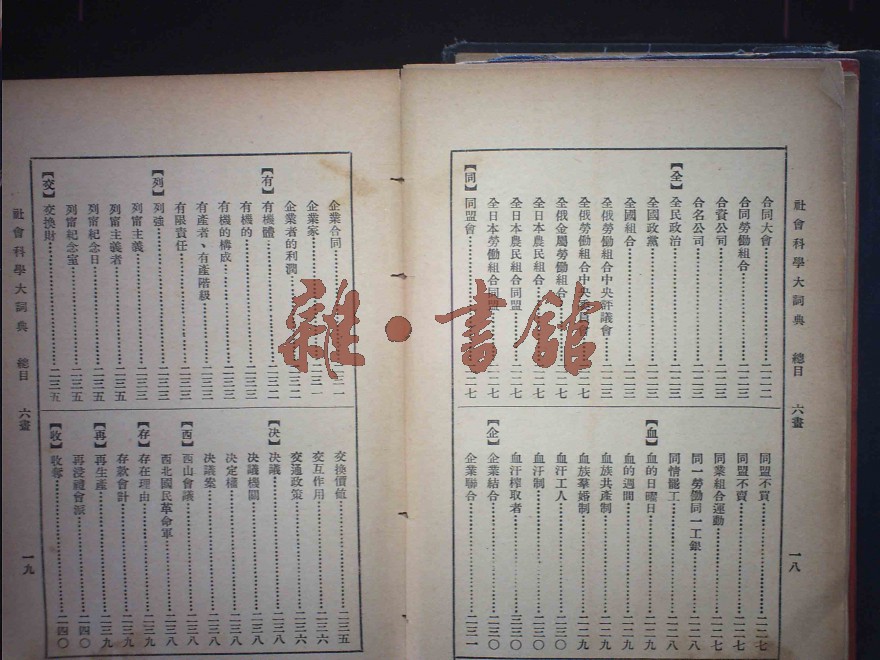 社會科學大詞典 總目 六畫 一八
合同大會 二二二
合同勞働組合 二二三
合資公司 二二三
合名公司 二二三
【全】
全民政治 二二三
全國政黨 二二三
全國組合 二二三
全俄勞働組合中央評議會 二二三
全俄勞働組合中央委員會 二二七
全俄金屬勞働組合 二二七
全日本農民組合 二二七
全日本農民組合同盟 二二七
全日本勞働組合同盟 二二七
【同】
同盟會 二二七
同盟不買 二二七
同盟不賣 二二七
同業組合運動 二二七
同一勞働同一工銀 二二八
同情罷工 二二八
【血】
血的日曜日 二二九
血的週間 二二九
血族共產制 二二九
血族羣婚制 二二九
血汗工人 二三〇
血汗制 二三〇
血汗榨取者 二三〇
【企】
企業結合 二三〇
企業聯合 二三一
企業合同 二三一
企業家 二三一
企業者的利潤 二三二
【有】
有機體 二三二
有機的 二三三
有機的構成 二三三
有產者、有產階級 二三三
有限責任 二三三
【列】
列強 二三三
列甯主義 二三三
列甯主義者 二三五
列甯紀念日 二三五
列甯紀念室 二三五
【交】
交換財 二三五
交換價値 二三五
交互作用 二三六
交通政策 二三六
【決】
決議 二三八
決議機關 二三八
決定權 二三八
決議案 二三八
【西】
西山會議 二三八
西北國民革命軍 二三八
【存】
存在理由 二三九
存款會計 二三九
【再】
再生產 二三九
再浸禮會派 二四〇
【收】
收奪 二四〇
社會科學大詞典 總目 六畫 一九
雜·書館